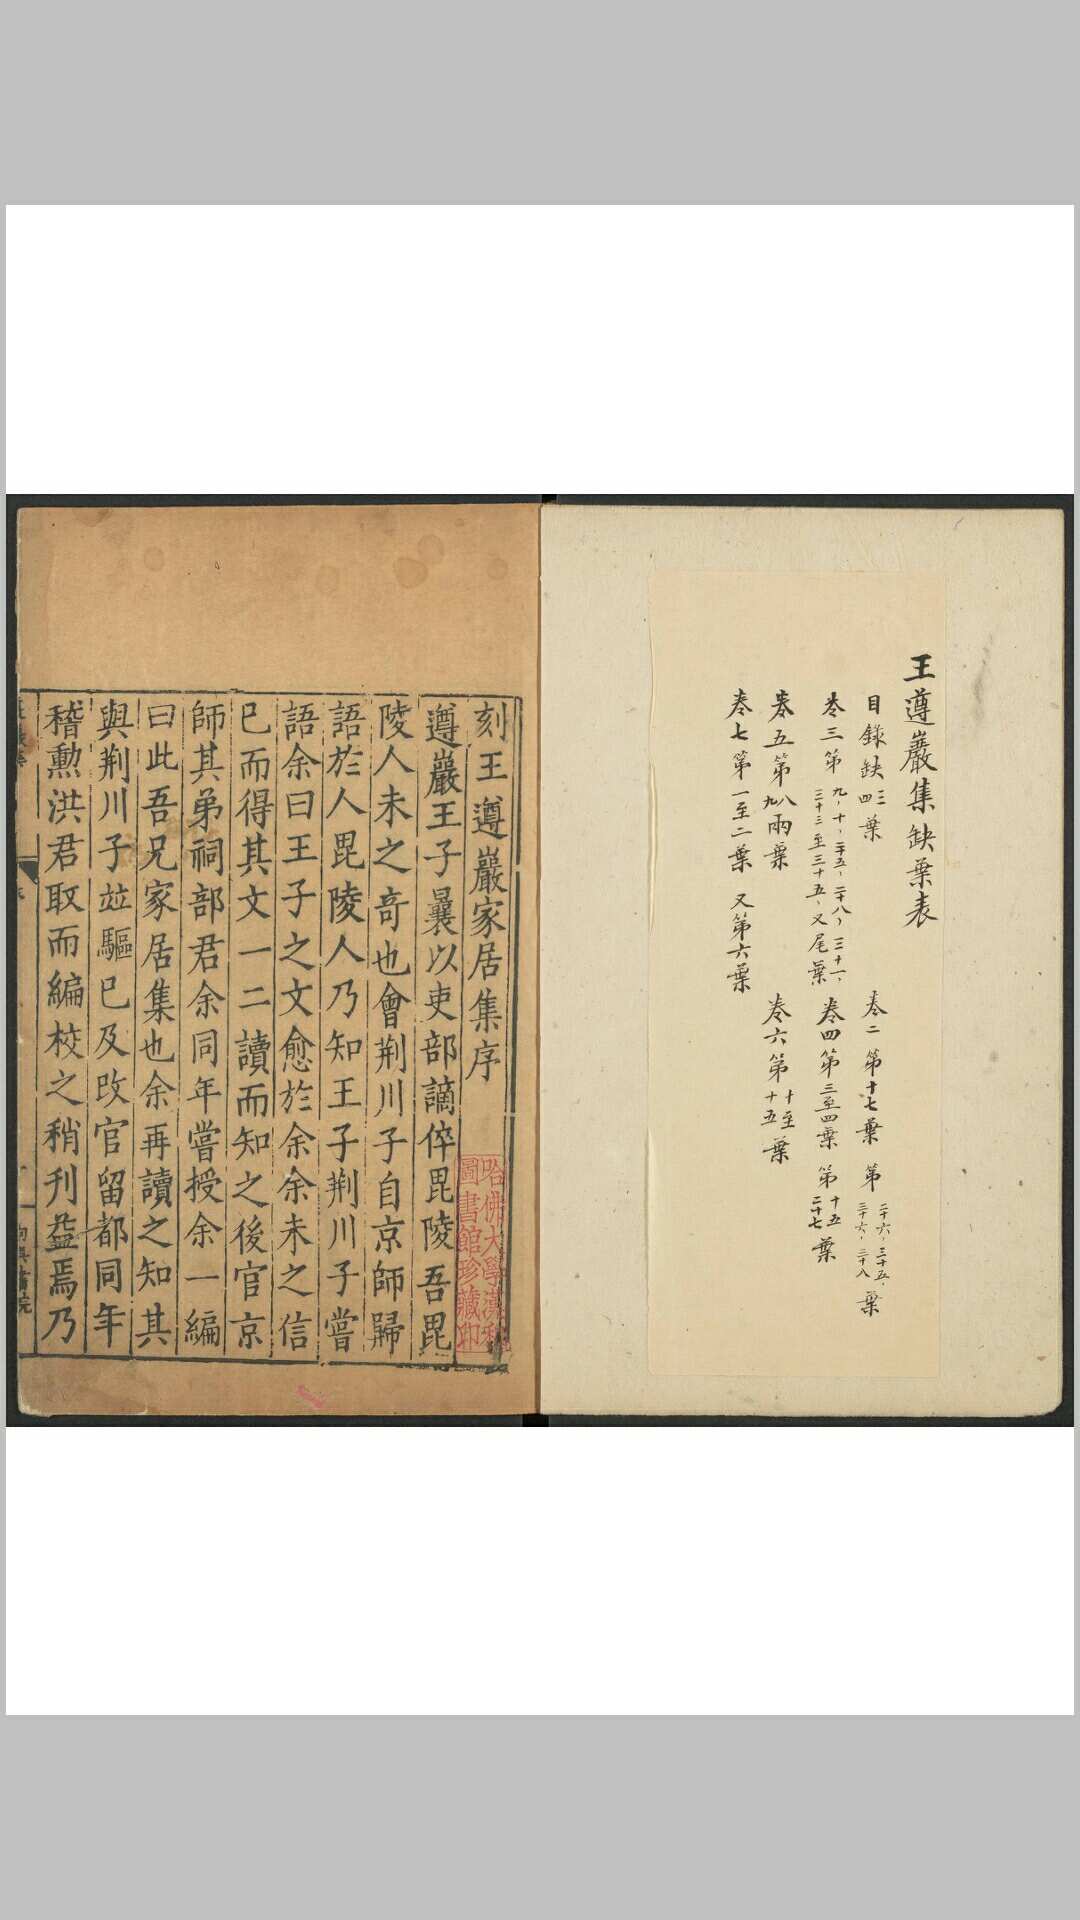 王遵巖集缺葉表
目錄缺三四葉
卷二第十七葉 第二十六、三十五、三十六、三十八葉
卷三第九、十、二十五、二十八、三十一、三十三至三十五、又尾葉
卷四第三至四葉 第十五二十七葉
卷五第八九兩葉
卷六第十至十五葉
卷七第一至二葉 又第六葉
刻王遵巖家居集序
遵巖王子曩以吏部謫倅毘陵吾毘
陵人未之奇也會荆川子自京師歸
語於人毘陵人乃知王子荆川子嘗
語余曰王子之文愈於余余未之信
巳而得其文一二讀而知之後官京
師其弟祠部君余同年嘗授余一編
曰此吾兄家居集也余再讀之知其
與荆川子竝驅巳及改官留都同年
稽勲洪君取而編校之稍刋益焉乃
哈佛大學漢和
圖書館珍藏印